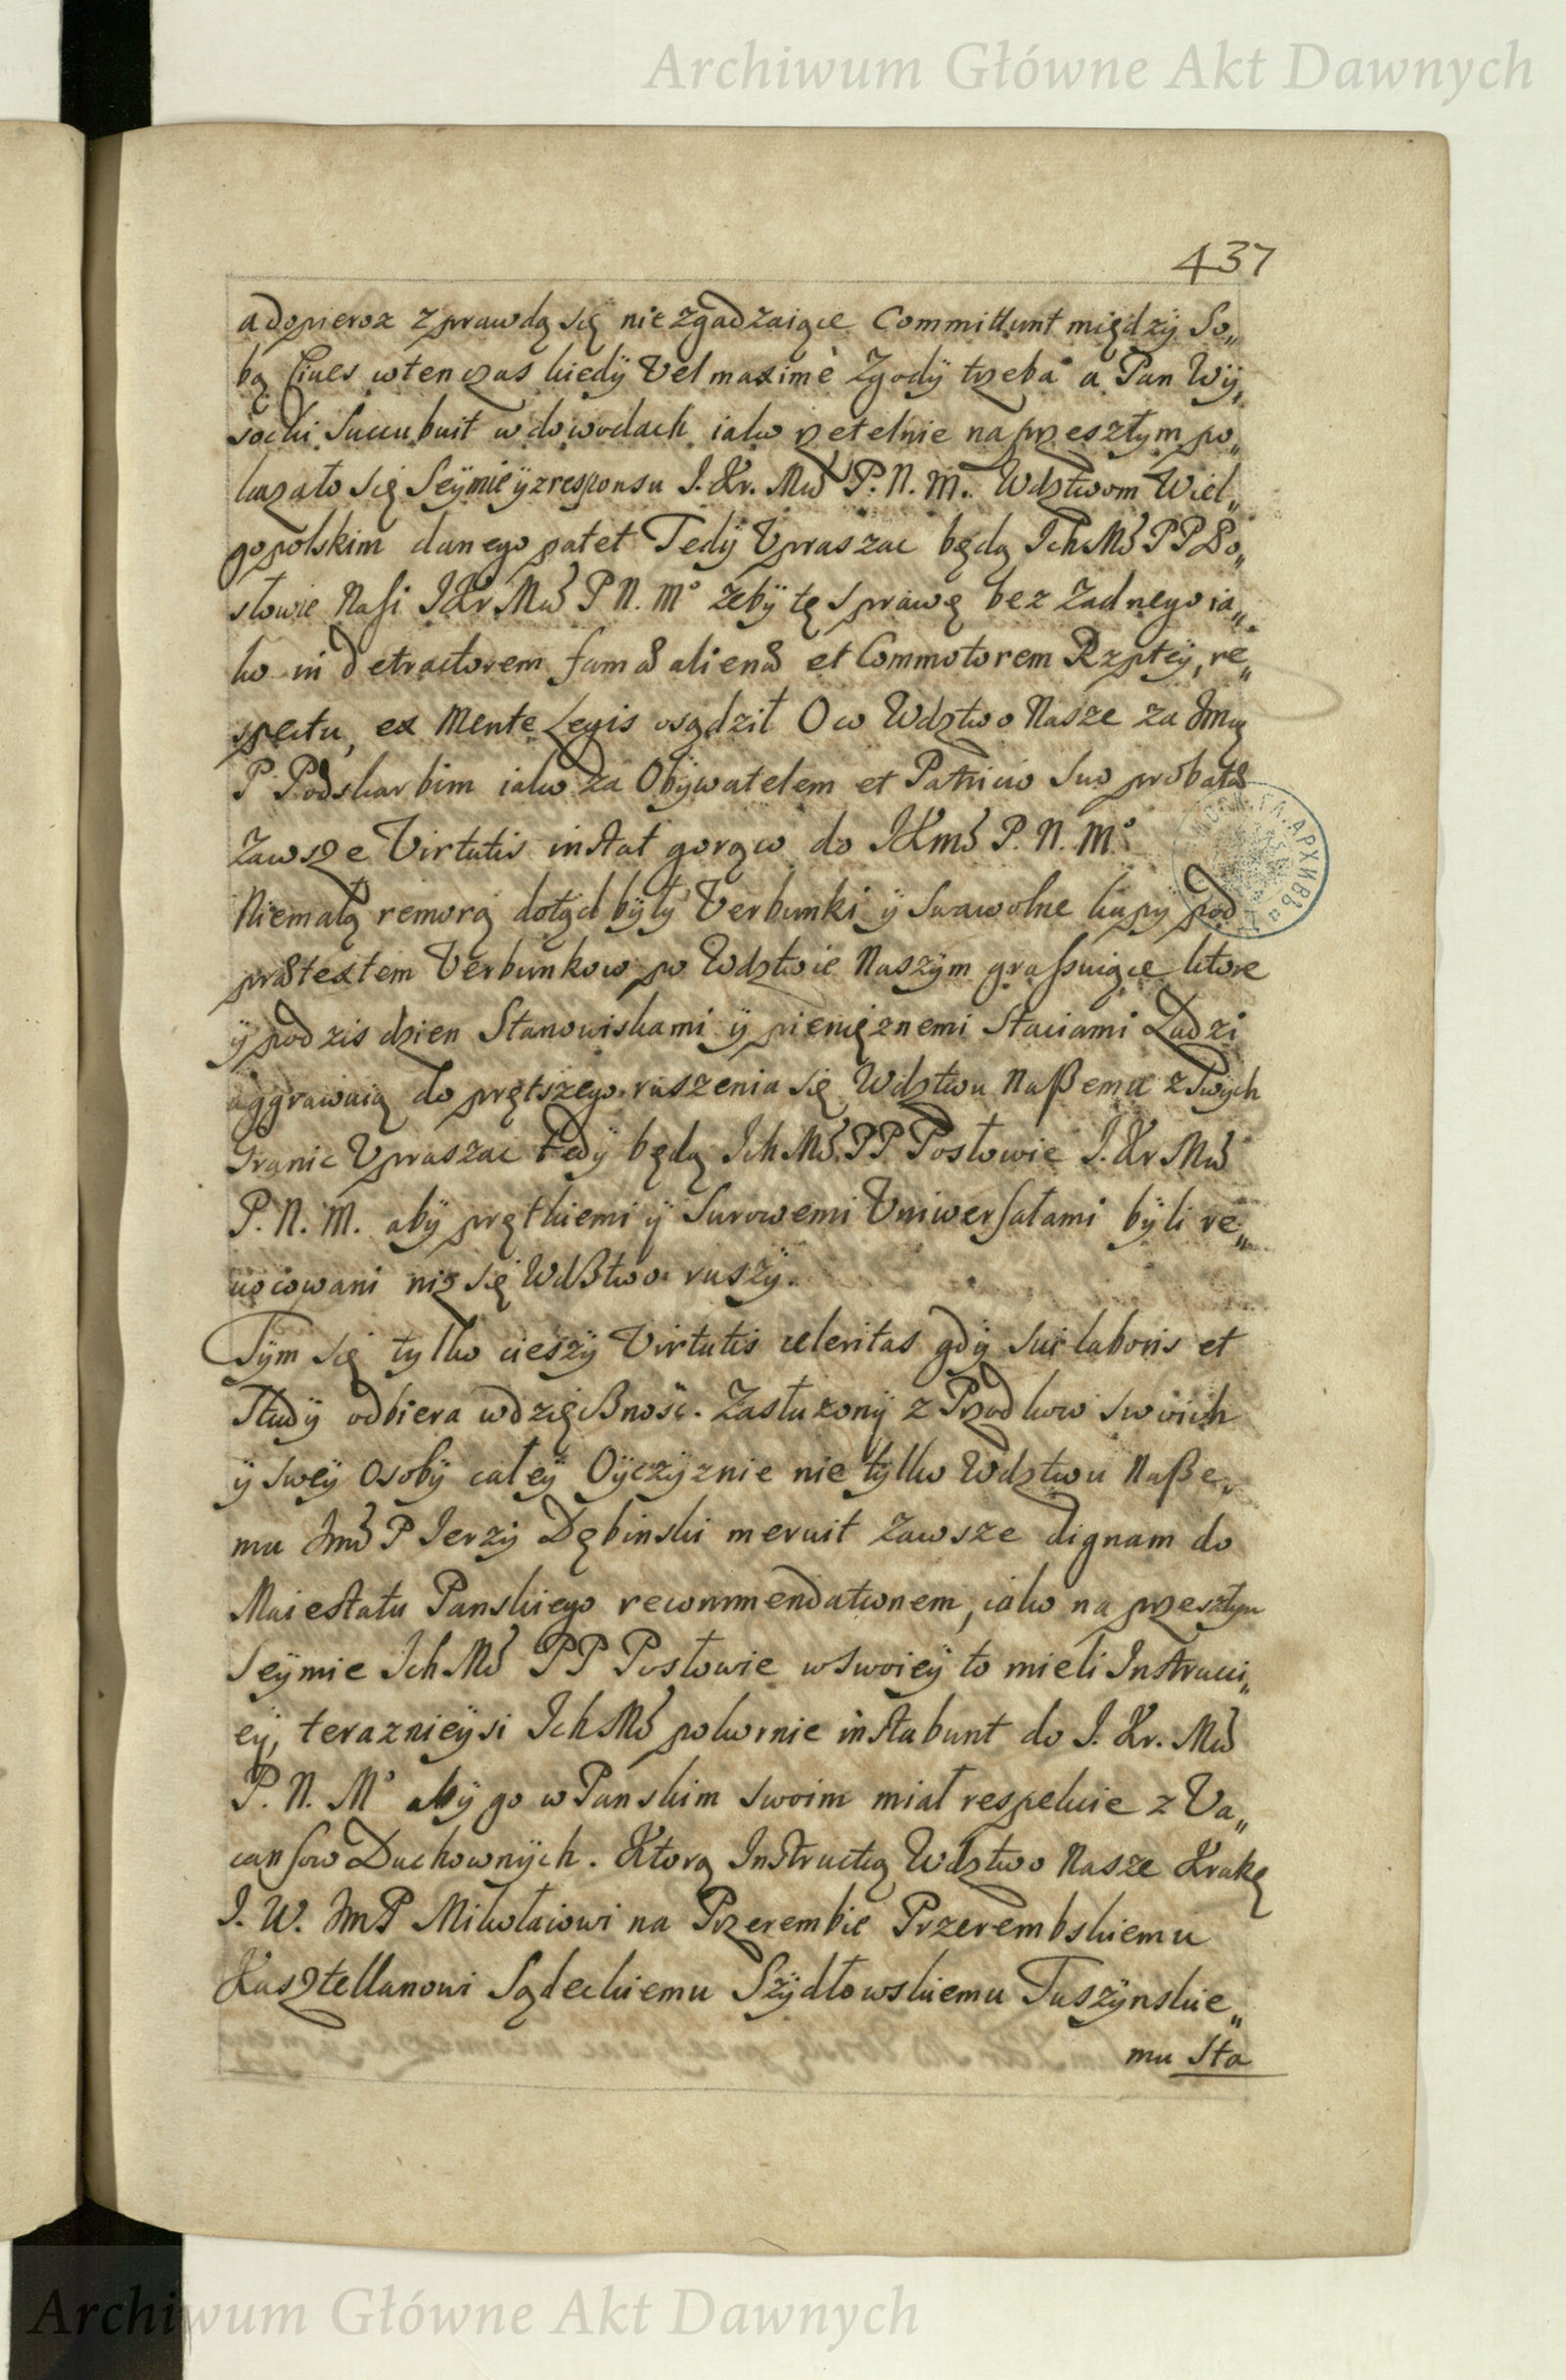 Archiwum Główne Akt Dawnych
437
a dopieroz z prawdą się nie zgadzaiące Committunt międzÿ So„
bą Ciues wten czas kiedÿ Vel maximè Zgodÿ trzeba a Pan Wÿ„
socki Succubuit w dowodach iako rzetelnie na przeszłym po„
kazało się Seÿmie ÿ z responsu J. Kr. Mći P. N. M. Wdztwom Wiel„
gopolskim danego patet Tedÿ Vpraszac będą Ich Mć PP Po„
słowie Nasi J Kr Mći P N. M° żebÿ tę sprawę bez Zadnego ia„
ko in detractorem famæ alienæ et Commotorem Rzptey, re„
spectu, ex Mente Legis osądził O co Wdztwo Nasze za Jmcią
P. Podskarbim iako za Obÿwatelem et Patricio Suo probatæ
Zawsze Virtutis instat gorąco do JKmć P. N. M°
Niemałą remorą dotąd bÿłÿ Verbunki ÿ Swawolne kupÿ pod
prætextem Verbunkow po Wdztwie Naszÿm grassuiące ktore
ÿ po dzis dzien Stanowiskami ÿ pieniężnemi Staciami Ludzi
aggrawuią do prętszego ruszenia się Wdztwu Naßemu z Swÿch
Granic Vpraszac tedÿ będą Ich Mć PP Posłowie J. Kr Mći
P. N. M. abÿ prętkiemi ÿ Surowemi Vniwersałami bÿli re„
uocowani niz się Wdßtwo ruszÿ.
Tÿm się tylko cieszÿ Virtutis celeritas gdÿ Sui laboris et
Studÿ odbiera wdzięcßnosc. Zasłuzonÿ z Przodkow swoich
ÿ sweÿ Osobÿ całeÿ Oÿczÿznie nie tÿlko Wdztwu Naße„
mu Jmć P Jerzÿ Dębinski meruit Zawsze dignam do
Maiestatu Panskiego recommendationem, iako na przeszłym
Seÿmie Ich Mć PP Posłowie w swoieÿ to mieli Instructi„
eÿ, teraznieÿsi Ich Mć pokornie instabunt do J. Kr. Mći
P. N. M° abÿ go w Panskim swoim miał respekcie z Va„
cansow Duchownÿch. Ktorą Instructią Wdztwo Nasze Krakę
J. W. Jm P Mikołaiowi na Przerembie Przerembskiemu
Kasztellanowi Sądeckiemu Szÿdłowskiemu Tuszÿnskie„
mu Sta
Archiwum Główne Akt Dawnych